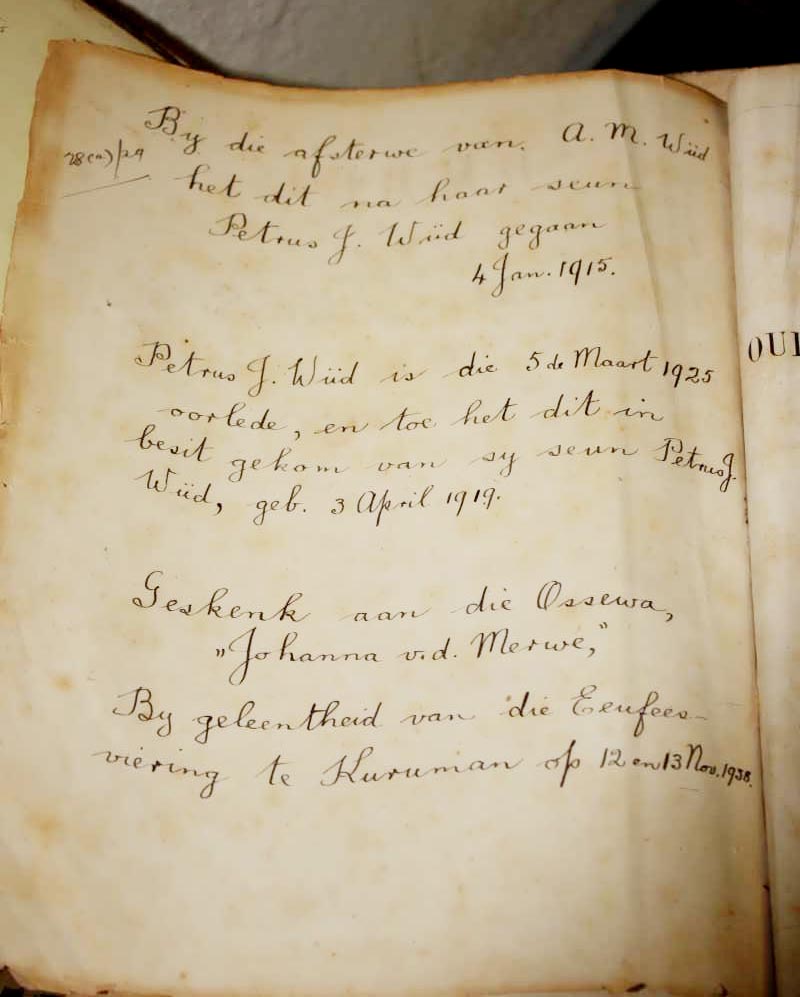 Bij die afsterwe van A. M. Wiid
28(a)/29
het dit na haar seun
Petrus J. Wiid gegaan
4 Jan. 1915.
Petrus J. Wiid is die 5de Maart 1925
oorlede, en toe het dit in
besit gekom van sy seun Petrus J.
Wiid, geb. 3 April 1919.
Geskenk aan die Ossewa,
„Johanna v.d. Merwe,"
By geleentheid van die Eeufees-
viering te Kuruman op 12 en 13 Nov. 1938.
OUI